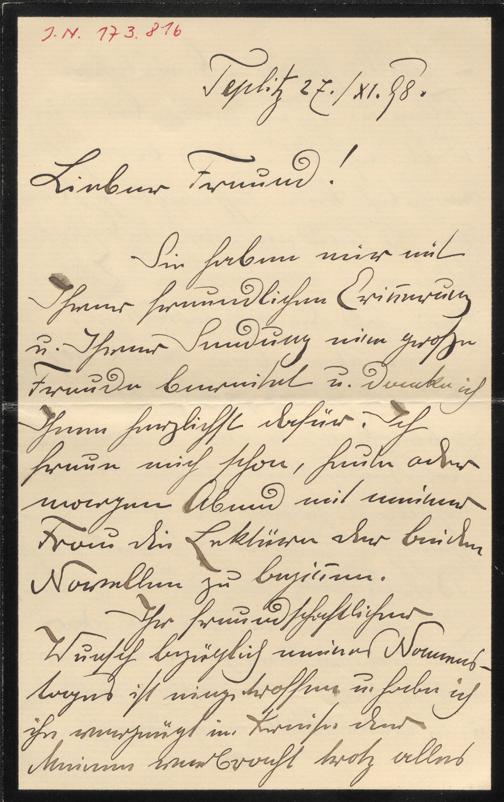 J.N. 173.816
Teplitz 27./XI. 98.
Lieber Freund!
Sie haben mir mit
Ihrer freundlichen Erinnerung
u. Ihrer Sendung eine große
Freude bereitet u. danke ich
Ihnen herzlichst dafür. Ich
freue mich schon, heute oder
morgen Abend mit meiner
Frau die Lektüre der beiden
Novellen zu beginnen.
Ihr freundschaftlicher
Wunsch bezüglich meines Namens-
tages ist eingetroffen u. habe ich
ihn vergnügt im Kreise der
Meinen verbracht trotz alles